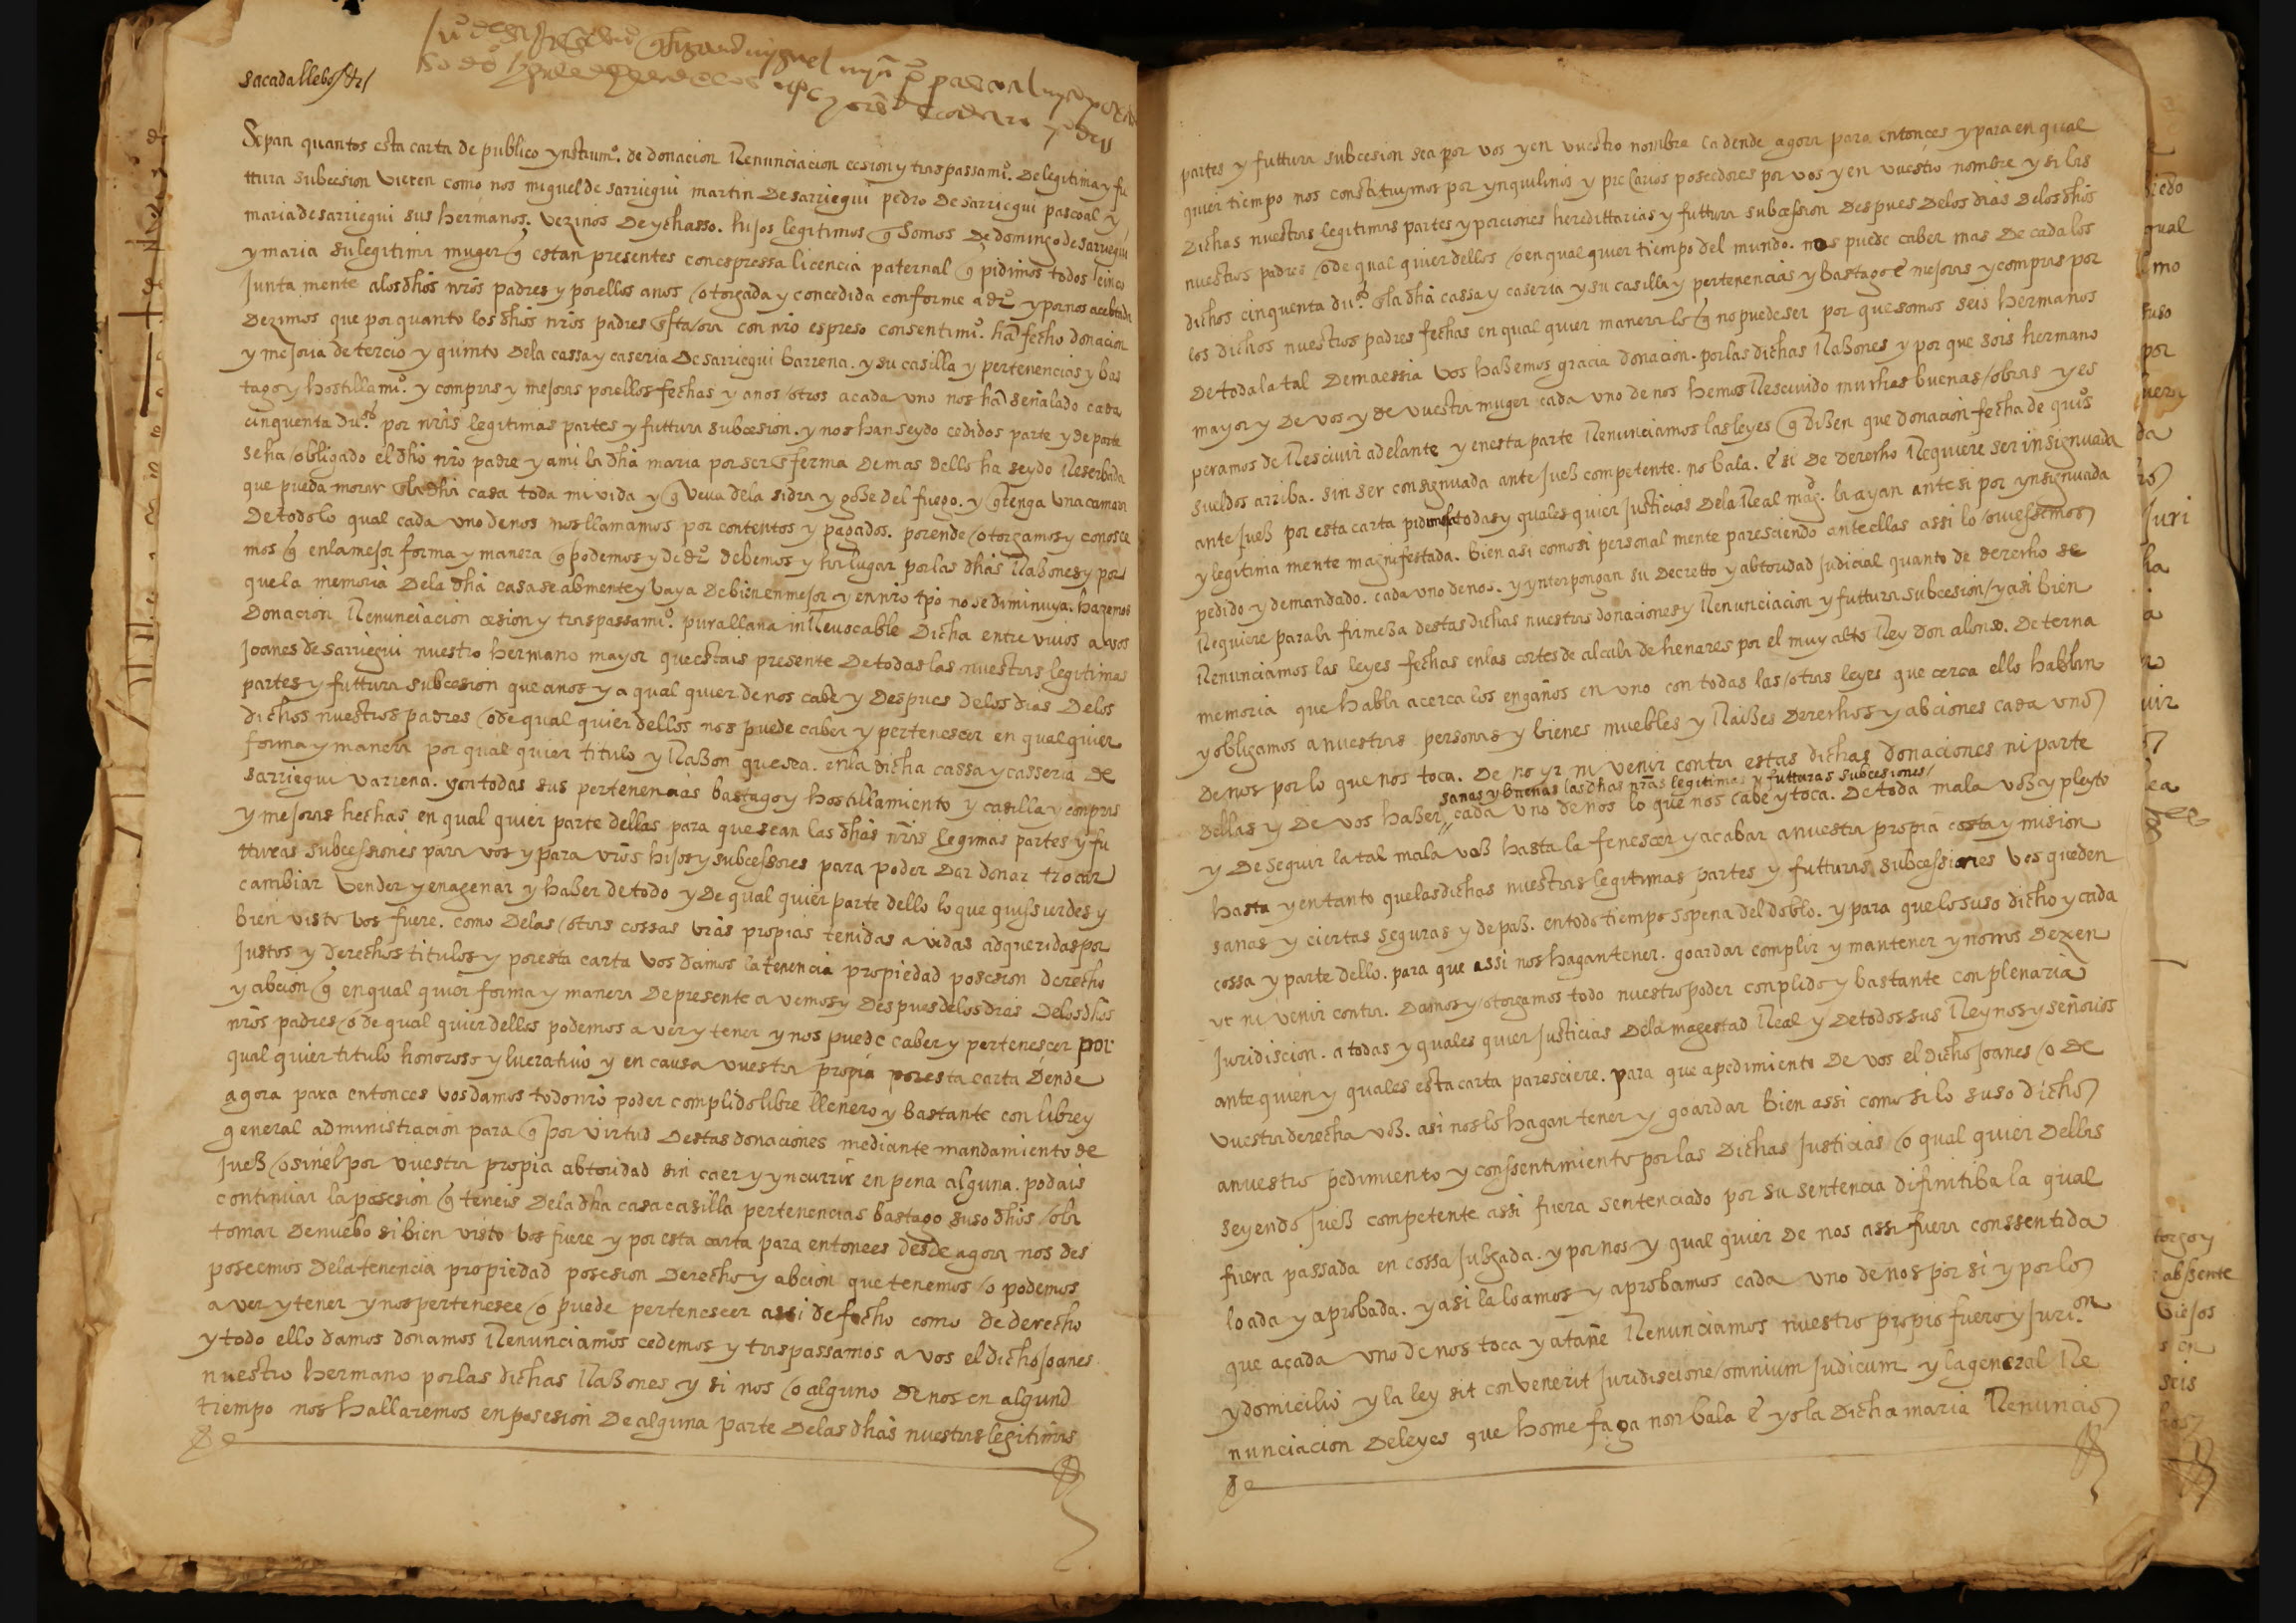 sacada llebos dr
Sepan quantos esta carta de publico ynstrumº. de donacion Renunciacion cesion y traspassamiº. De legitima y fu
ttura subcesion Vieren como nos miguel de sarriegui martin De sarriegui pedro De sarriegui pascoal y
maria de sarriegui sus hermanos. Vezinos De ychasso. hijos legitimos q Somos De domingo de sarriegui
y maria su legitima muger q estan presentes con espressa licencia paternal q pidimos todos cinco
Junta mente a los dhos nros padres y por ellos a nos otorgada y concedida conforme a drº y por nos acebtada
Dezimos que por quanto los dhos nros padres con nro espreso consentimiº. han fecho donacion
y mejoria de tercio y quinto Dela cassa y caseria De sarriegui barrena. y su casilla y pertenencias y bas
tago y hostillamiº. y compras y mejoras por ellos fechas y a nos otros a cada uno nos han señalado cada
cinquenta duºs por nras legitimas partes y futtura subcesion. y nos han seydo cedidos parte y de parte
se ha obligado el dho nro padre y a mi la dha maria por ser enferma Demas dello ha seydo Reserbada
que pueda morar en la dha casa toda mi vida y q veva dela sidra y goze del fuego. y q tenga una camara
De todo lo qual cada uno de nos nos llamamos por contentos y pagados. porende otorgamos y conosce
mos q en la mejor forma y manera q podemos y de drº debemos y ha lugar por las dhas Razones y por
que la memoria Dela dha casa se abmente y vaya De bien en mejor y en nro tpo no se diminuya. hazemos
Donacion Renunciacion cesion y traspassamiº. pura llana inRevocable Dicha entre vivos a vos
Joanes de sarriegui nuestro hermano mayor que estais presente De todas las nuestras legitimas
partes y futtura subcesion que a nos y a qual quier de nos cabe y Despues delos dias Delos
dichos nuestros padres o de qual quier dellos nos puede caber y pertenescer en qual quier
forma y manera por qual quier titulo y Razon que sea. en la dicha cassa y casseria de
sarriegui varrena. y en todas sus pertenencias bastago y hostillamiento y casilla y conpras
y mejoras hechas en qual quier parte dellas para que sean las dhas nras legimas partes y fu
tturas subcessiones para vos y para vros hijos y subcessores para poder Dar donar trocar
cambiar vender y enagenar y hazer de todo y De qual quier parte dello lo que quissierdes y
bien visto vos fuere. como Delas otras cossas vras propias tenidas avidas adqueridas por
Justos y derechos titulos y por esta carta vos damos la tenencia propiedad posesion derecho
y abcion q en qual quier forma y manera De presente avemos y Despues delos dias Delos dhos
nros padres o de qual quier dellos podemos aver y tener y nos puede caber y pertenescer por
qual quier titulo honoroso y lucrativo y en causa vuestra propia por esta carta Dende
agora para entonces vos damos todo nro poder complido libre llenero y bastante con libre y
general administracion para q por virtud Destas donaciones mediante mandamiento de
Juez o sin el por vuestra propia abtoridad sin caer y yncurrir en pena alguna. podais
continuar la posesion q teneis Dela dha casa casilla pertenencias bastago suso dhos o la
tomar De nuebo si bien visto vos fuere y por esta carta para entonces desde agora nos des
poseemos Dela tenencia propiedad posesion Derecho y abcion que tenemos o podemos
aver y tener y nos pertenesce o puede pertenescer assi de fecho como de derecho
y todo ello damos donamos Renunciamos cedemos y traspassamos a vos el dicho Joanes
nuestro hermano por las dichas Razones y si nos o alguno de nos en algund
tiempo nos hallaremos en posesion De alguna parte Delas dhas nuestras legitimas
partes y futtura subcesion sea por vos y en vuestro nombre Ca dende agora para entonces y para en qual
quier tiempo nos constituymos por ynquilinos y precarios poseedores por vos y en vuestro nombre y si las
Dichas nuestras legitimas partes y porciones heredittarias y futtura subcession Despues Delos dias Delos dhos
nuestros padres o de qual quier dellos o en qual quier tiempo del mundo. nos puede caber mas De cada los
dichos cinquenta duºs en la dha cassa y caseria y su casilla y pertenencias y bastago e mejoras y compras por
los dichos nuestros padres fechas en qual quier manera lo q no puede ser por que somos seis hermanos
De toda la tal Demaessia Vos hazemos gracia donacion. por las dichas Razones y por que sois hermano
mayor y De vos y de vuestra muger cada uno de nos hemos Rescivido muchas buenas obras y es
peramos de Rescivir adelante y en esta parte Renunciamos las leyes q dizen que donacion fecha de quiºs
sueldos arriba. sin ser consignuada ante Juez competente. no bala. E si De Derecho Requiere ser insignuada
ante Juez por esta carta pidimos a todas y quales quier Justicias Dela Real magd. la ayan ante si por ynsignuada
y legitima mente magnifestada. bien asi como si personal mente paresciendo ante ellas assi lo oviessemos
pedido y demandado. cada uno de nos. y ynterpongan su Decretto y abtoridad judicial quanto de derecho se
Requiere para la firmeza destas dichas nuestras donaciones y Renunciacion y futtura subcesion y asi bien
Renunciamos las leyes fechas en las cortes de alcala de henares por el muy alto Rey don alonso. De terna
memoria que habla acerca los engaños en uno con todas las otras leyes que cerca ello hablan
y obligamos a nuestras personas y bienes muebles y Raizes Derechos y abciones cada uno
De nos por lo que nos toca. De no yr ni venir contra estas dichas donaciones ni parte
sanas y buenas las dhas nras legitimas y futturas subcesiones
Dellas y De vos hazer cada uno de nos lo que nos cabe y toca. De toda mala voz y pleyto
y De seguir la tal mala voz hasta la fenescer y acabar a nuestra propia costa y mision
hasta y en tanto que las dichas nuestras legitimas partes y futturas subcessiones vos queden
sanas y ciertas seguras y de paz. en todo tiempo so pena del doblo. y para que lo suso dicho y cada
cossa y parte dello. para que assi nos hagan tener. goardar complir y mantener y no nos Dexen
yr ni venir contra. Damos y otorgamos todo nuestro poder conplido y bastante con plenaria
Juridiscion. a todas y quales quier Justicias Dela magestad Real y De todos sus Reynos y señorios
ante quien y quales esta carta paresciere. para que a pedimiento De vos el dicho Joanes o de
vuestra derecha voz. asi nos lo hagan tener y goardar bien assi como si lo suso dicho
a nuestro pedimiento y conssentimiento por las Dichas Justicias o qual quier Dellas
seyendo Juez competente assi fuera sentenciado por su sentencia difinitiba la qual
fuera passada en cossa Julgada. y por nos y qual quier De nos assi fuera conssentida
loada y aprobada. y asi la loamos y aprobamos cada uno de nos por si y por lo
que a cada uno de nos toca y atañe Renunciamos nuestro propio fuero y Juri.on
y domicilio y la ley sit convenerit Juridiscione omnium Judicum y la general Re
nunciacion De leyes que home faga non bala E yo la Dicha maria Renuncio